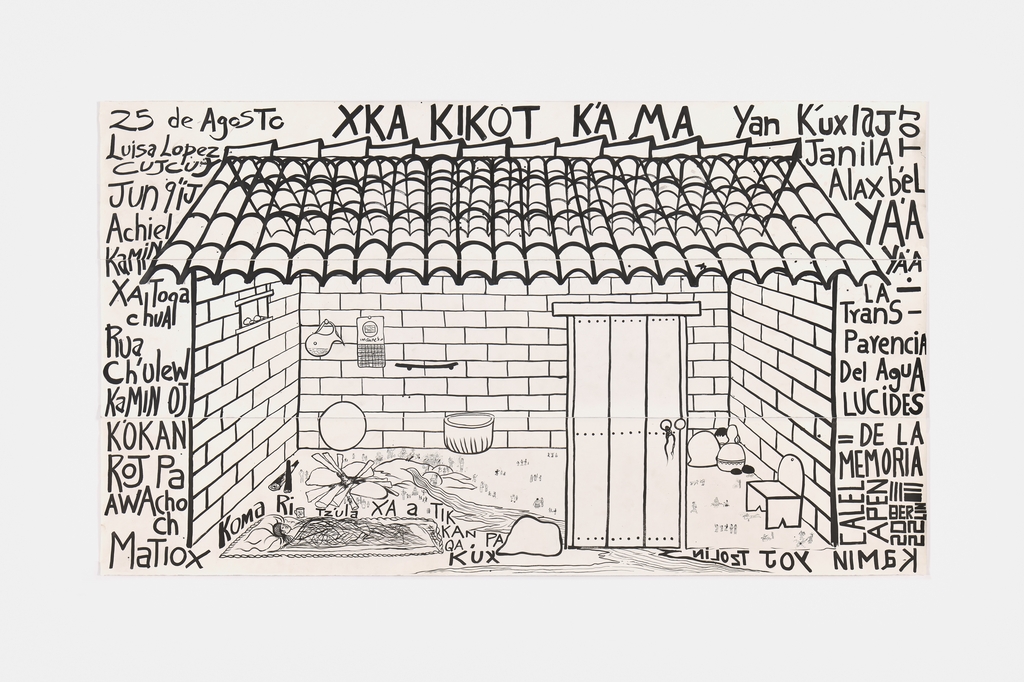 25 de AgosTo
XKA KIKOT K'A MA
Yan K'uxlaJ
TOJ
Luisa Lopez
CUJCUJ
JUN q'iJ
Achiel
KaMiN
XA Toqa
chuAl
Rua
Ch'uleW
KaMIN OJ
KOKAN
ROJ Pa
AWAcho
ch
MaTiox
JanilA
Alax b'eL
YA'A
YA'A
LA
TranS-
ParenciA
Del AguA
LUCIDES
= DE LA
MEMORIA
Koma Ri
Tzula XA a TIK
KAN PA
QA
K'ux
KaMIN YOJ Tzolin
CALEL
APEN